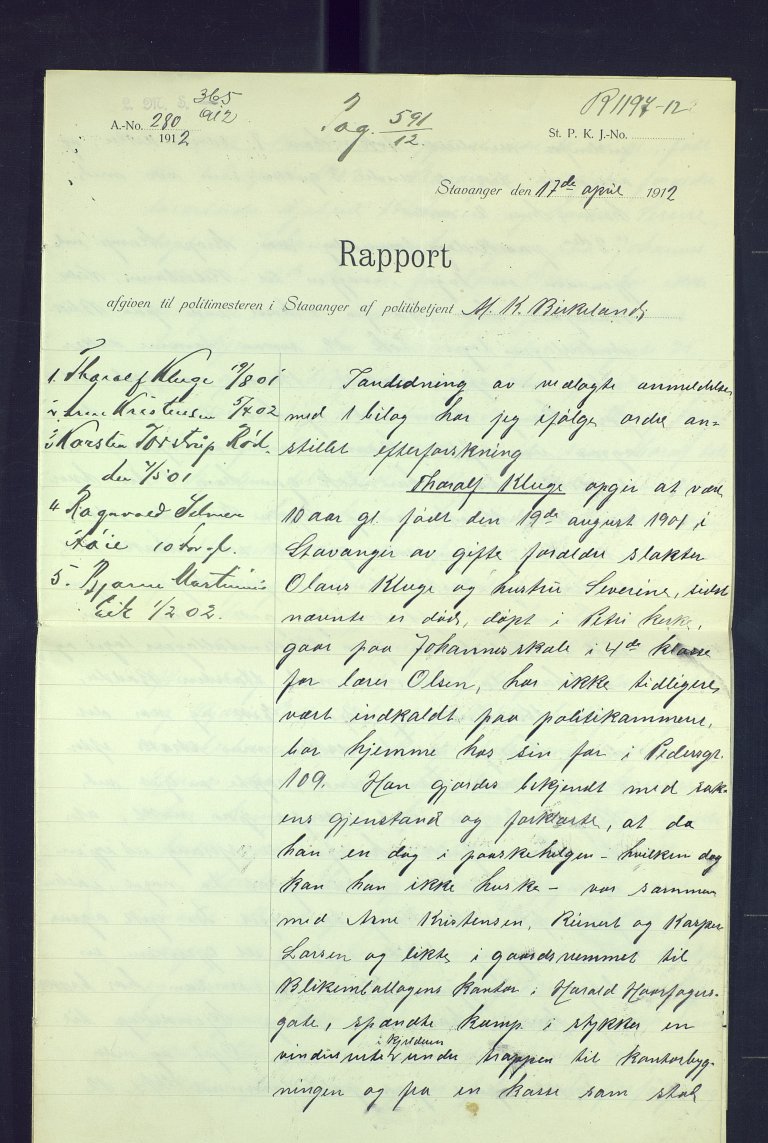 A.-No. 280 365
1912 912
Jog. 591/12
R 1197-12
St. P. K. J.-No.
Stavanger den 17de april 1912
Rapport
afgiven til politimesteren i Stavanger af politibetjent M. K. Birkeland
1. Tharalf Kluge 19/8 01
2. Arne Kristensen 5/4 02
3 Karsten Torstrup Rød-
der 4/5 01
4 Ragnvald Selmer
Høie 10 aar gl.
5. Bjarne Martinius
Eik 1/2 02.
I anledning av vedlagte anmeldelse
med 1 bilag har jeg ifølge ordre an-
stillet efterforskning
Tharalf Kluge opgir at være
10 aar gl. født den 19de august 1901 i
Stavanger av gifte forældre slakter
Olaus Kluge og hustru Severine, sidst
nævnte er død, døpt i Petri kirke,
gaar paa Johannesskole i 4de klasse
for lærer Olsen, har ikke tidligere
vært indkaldt paa politikammeret,
bor hjemme hos sin far i Pedersgt.
109. Han gjordes bekjendt med sak-
ens gjenstand og forklarte, at da
han en dag i paaskehelgen - hvilken dag
kan han ikke huske - var sammen
med Arne Kristensen, Reinert og Kasper
Larsen og lekte i gaardsrummet til
Blikemballagens kontor i Harald Haarfagers-
gate, spændte kamp i stykker en
vindusrute i kjelderen under trappen til kontorbyg-
ningen og fra en kasse som stod